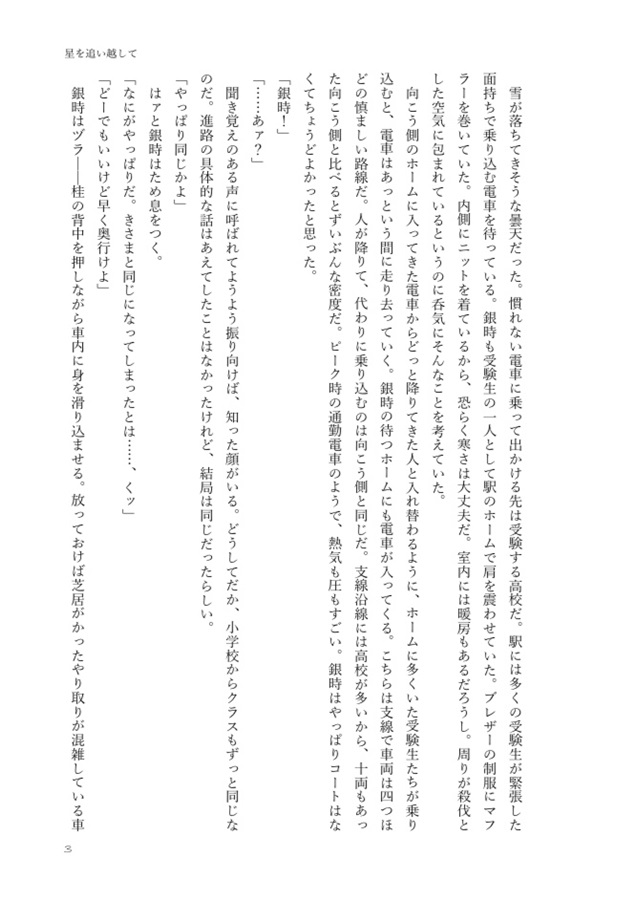 星を追い越して
雪が落ちてきそうな曇天だった。慣れない電車に乗って出かける先は受験する高校だ。駅には多くの受験生が緊張した
面持ちで乗り込む電車を待っている。銀時も受験生の一人として駅のホームで肩を震わせていた。ブレザーの制服にマフ
ラーを巻いていた。内側にニットを着ているから、恐らく寒さは大丈夫だ。室内には暖房もあるだろうし。周りが殺伐と
した空気に包まれているというのに呑気にそんなことを考えていた。
向こう側のホームに入ってきた電車からどっと降りてきた人と入れ替わるように、ホームに多くいた受験生たちが乗り
込むと、電車はあっという間に走り去っていく。銀時の待つホームにも電車が入ってくる。こちらは支線で車両は四つほ
どの慎ましい路線だ。人が降りて、代わりに乗り込むのは向こう側と同じだ。支線沿線には高校が多いから、十両もあっ
た向こう側と比べるとずいぶんな密度だ。ピーク時の通勤電車のようで、熱気も圧もすごい。銀時はやっぱりコートはな
くてちょうどよかったと思った。
「銀時！」
「……あァ？」
聞き覚えのある声に呼ばれてようよう振り向けば、知った顔がいる。どうしてだか、小学校からクラスもずっと同じな
のだ。進路の具体的な話はあえてしたことはなかったけれど、結局は同じだったらしい。
「やっぱり同じかよ」
はァと銀時はため息をつく。
「なにがやっぱりだ。きさまと同じになってしまったとは……、くッ」
「どーでもいいけど早く奥行けよ」
銀時はヅラ――桂の背中を押しながら車内に身を滑り込ませる。放っておけば芝居がかったやり取りが混雑している車
3